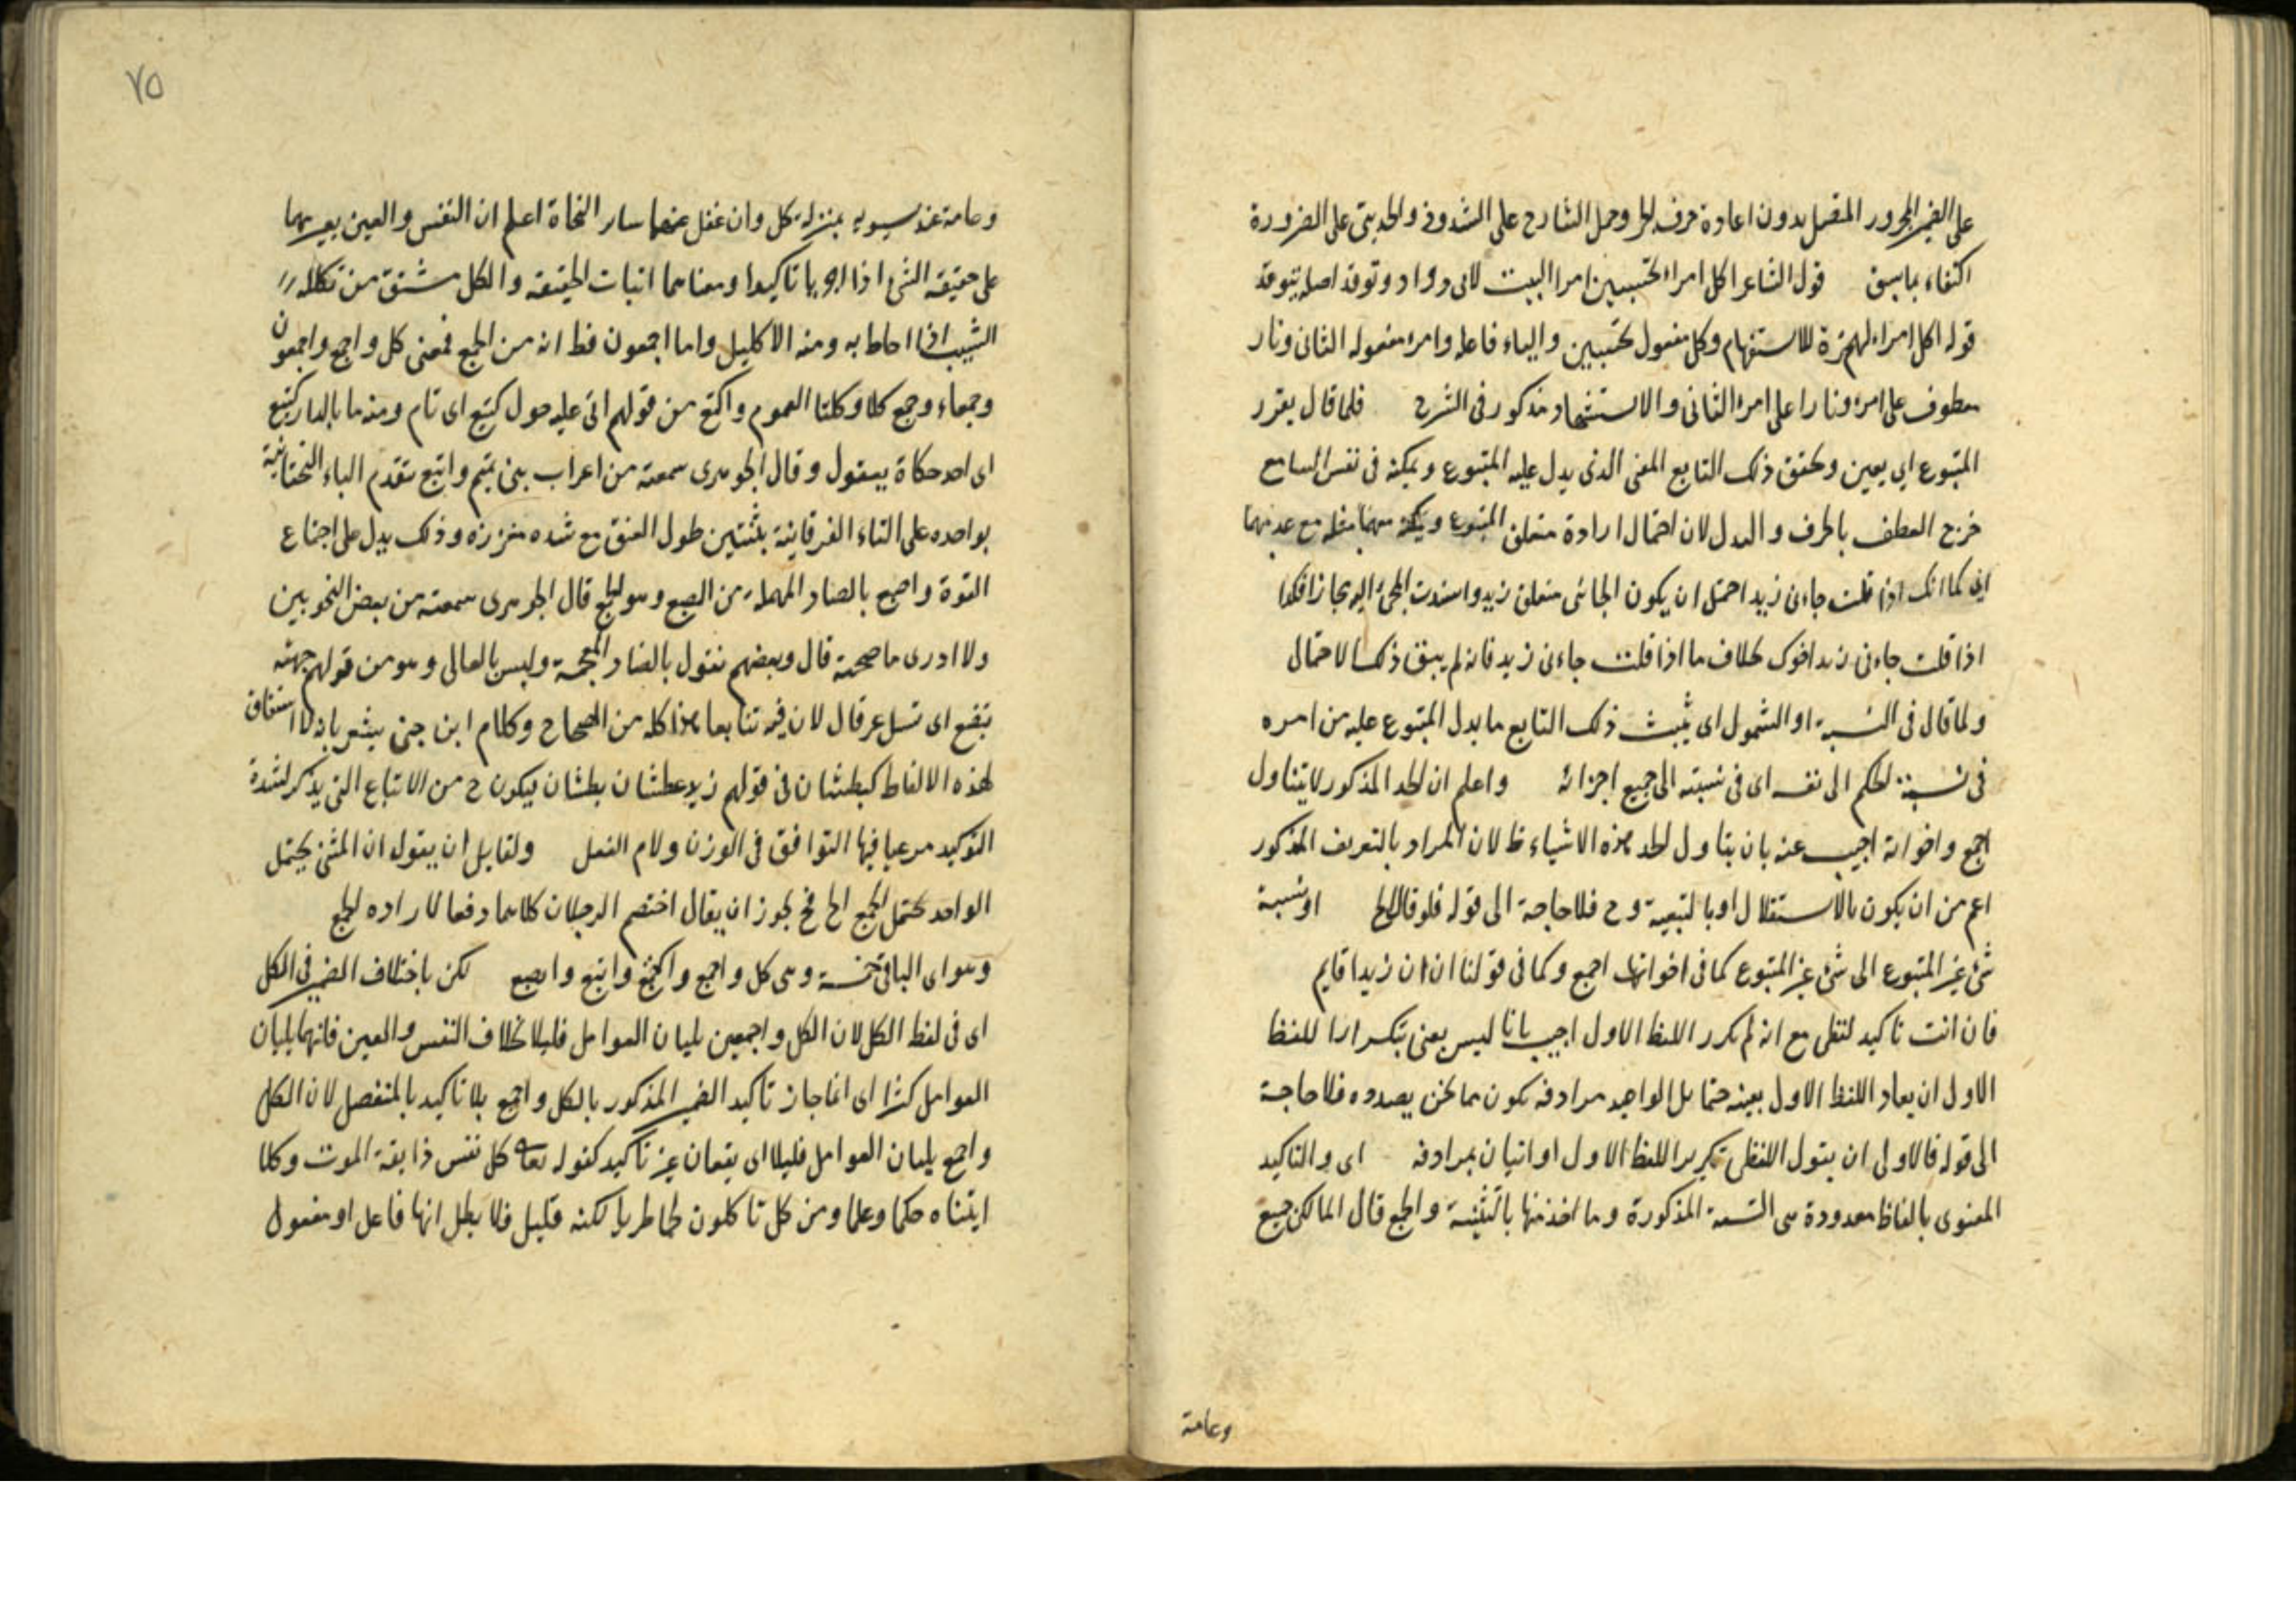 على الضمير المجرور المتصل بدون اعادة حرف الجر وحمل الشارح على الشذوذ والحديثى على الضرورة
اكتفاء بماسبق قول الشاعر اكل امرا تحتسبين امرا البيت لابى دواد وتوقد اصله تتوقد
قوله اكل امراء الهمزة للاستفهام وكل مفعول تحتسبين والياء فاعله وامرء مفعوله الثانى ونار
معطوف على امرء ونارا على امرء الثانى والاستشهاد مذكور فى الشرح فلما قال يقرر
المتبوع اى يعين ويحقق ذلك التابع المعنى الذى يدل عليه المتبوع ويمكنه فى نفس السامع
خرج العطف بالحرف والبدل لان احتمال ارادة متعلق المتبوع مع عدمهما
اى كما انك اذا قلت جاءنى زيد احتمل ان يكون الجائى متعلق زيد واسندت المجئ اليه مجازا فكذا
اذا قلت جاءنى زيد اخوك بخلاف ما اذا قلت جاءنى زيد فانه لم يبق ذلك الاحتمال
ولما قال فى النسبة او الشمول اى يثبت ذلك التابع ما يدل المتبوع عليه من امره
فى نسبة الحكم الى نفسه اى فى نسبته الى جميع اجزائه واعلم ان الحد المذكور لا يتناول
اجمع واخواته اجيب عنه بان يتناول الحد هذه الاشياء ظ لان المراد بالتعريف المذكور
اعم من ان يكون بالاستقلال او بالتبعية وح فلا حاجة الى قوله فلو قال الخ او نسبة
شئ غير المتبوع الى شئ غير المتبوع كما فى اخواتها اجمع وكما فى قولنا ان ان زيدا قايم
فان انت تاكيد لفظى مع انه لم يكرر اللفظ الاول اجيب بانا ليس بعنى بتكرارا للفظ
الاول ان يعاد اللفظ الاول بعينه حتما بل الواجد مرادفه يكون مما نحن بصدده فلا حاجة
الى قوله فالاولى ان يقول اللفظى تكرير اللفظ الاول او اتيان بمرادفه اى والتاكيد
المعنوى بالفاظ معدودة هى التسعة المذكورة وما اخذ منها بالتثنية والجمع قال المالكى جميع
وعامة
٧٥
وعامة عند سيبويه بمنزلة كل وان غفل عنهما سار النحاة اعلم ان النفس والعين يعبر بهما
على حقيقة الشئ اذا تاكيدا ومعناهما اثبات الحقيقة والكل مشتق من تكلله
الشيب اذا احاط به ومنه الاكليل واما اجمعون فظ انه من الجمع فمعنى كل واجمع واجمعون
وجمعاء وجمع كلا وكلتا العموم واكتع من قولهم اتى عليه حول كتيع اى تام ومنه ما بالدار كتيع
اى احد حكاة يعقول وقال الجوهرى سمعته من اعراب بنى تميم وابتع بتقدم الباء التحتانية
بواحده على التاء الفوقانية بثنتين طول العنق مع شده مغرزه وذلك يدل على اجتماع
القوة وابصع بالصاد المهملة من البصع وهو الجمع قال الجوهرى سمعته من بعض النحويين
ولا ادرى ما صحته قال وبعضهم نقول بالضاد المعجمة وليس بالعالى وهو من قولهم جهته
تبضع اى تسيل عرقا لان فيه تتابعا هذا كله من الصحاح وكلام ابن جنى يشعر بانه لا اشتقاق
لهذه الالفاظ كبطشان فى قولهم زيد عطشان بطشان فيكون ح من الاتباع التى يذكر لشدة
التوكيد مرعيا فيها التوافق فى الوزن ولام الفعل ولقايل ان يقول ان المثنى يحتمل
الواحد يحتمل الجمع الخ فح يجوز ان يقال اختصم الرجلان كلاهما دفعا لاراده الجمع
وهو اى الباقى خمسة وهى كل واجمع واكتع وابتع وابصع لكن باختلاف الضمير فى الكل
اى فى لفظ الكل لان الكل واجمعين يليان العوامل قليلا بخلاف النفس والعين فانهما يليان
العوامل كثيرا اى انما جاز تاكيد الضمير المذكور بالكل واجمع بلا تاكيد بالمنفصل لان الكل
واجمع يليان العوامل قليلا اى يقعان غير تاكيد كقوله تعالى كل نفس ذايقة الموت وكلا
اتيناه حكما وعلما ومن كل تاكلون لحما طريا لكنه قليل فلا يطل انها فاعل او مفعول